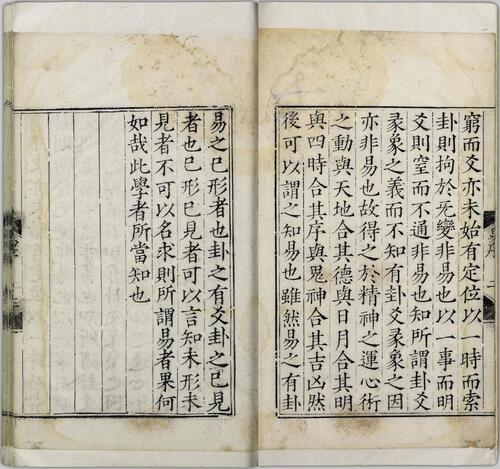 窮而爻亦未始有定位以一時而索
卦則拘於无變非易也以一事而明
爻則窒而不通非易也知所謂卦爻
彖象之義而不知有卦爻彖象之因
亦非易也故得之於精神之運心術
之動與天地合其德與日月合其明
與四時合其序與鬼神合其吉凶然
後可以謂之知易也雖然易之有卦
易之已形者也卦之有爻卦之已見
者也已形已見者可以言知未形未
見者不可以名求則所謂易者果何
如哉此學者所當知也